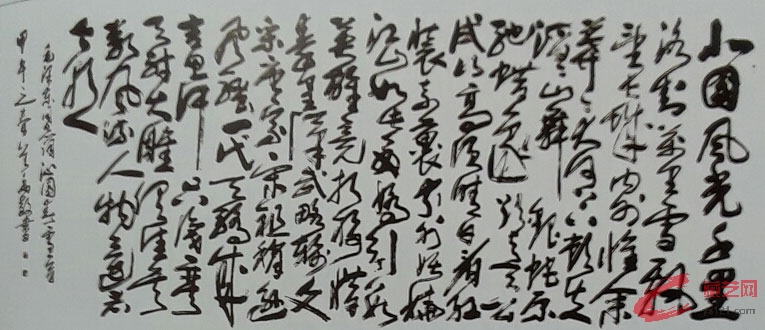 北国风光千里
冰封万里雪飘
望长城内外惟余
莽莽大河上下顿失
滔滔山舞银蛇原
驰蜡象欲与天公
试比高须晴日看红
装素裹分外妖娆
江山如此多娇引无数
英雄竞折腰惜
秦皇汉武略输文
采唐宗宋祖稍逊
风骚一代天骄成
吉思汗只识弯
弓射大雕俱往矣
数风流人物还看
今朝
毛泽东同志词沁园春雪一首
甲午之春书